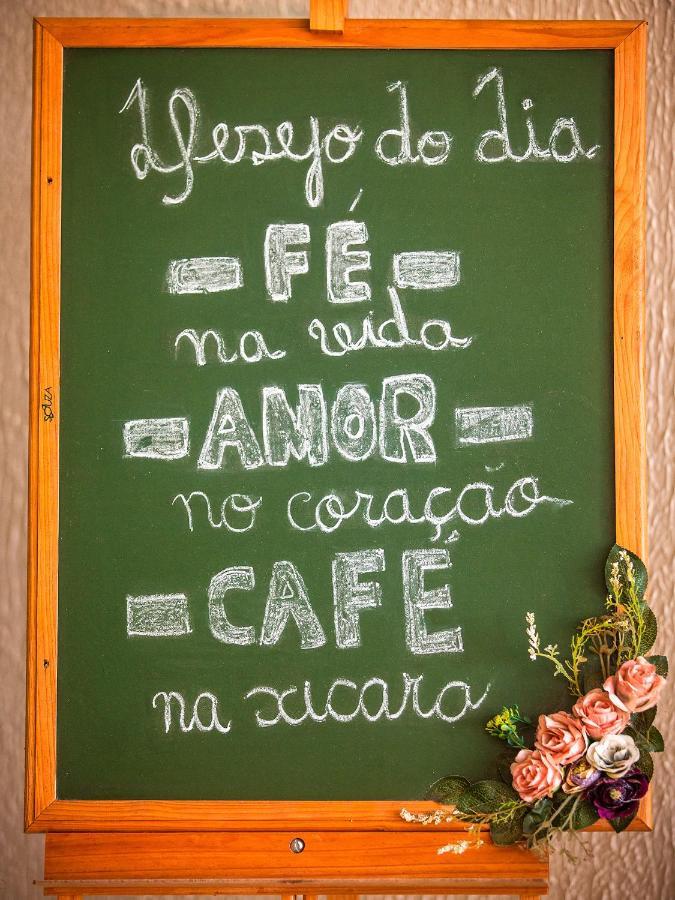 Desejo do Dia
- FÉ -
na vida
- AMOR -
no coração
- CAFÉ
na xicara
SOUZA